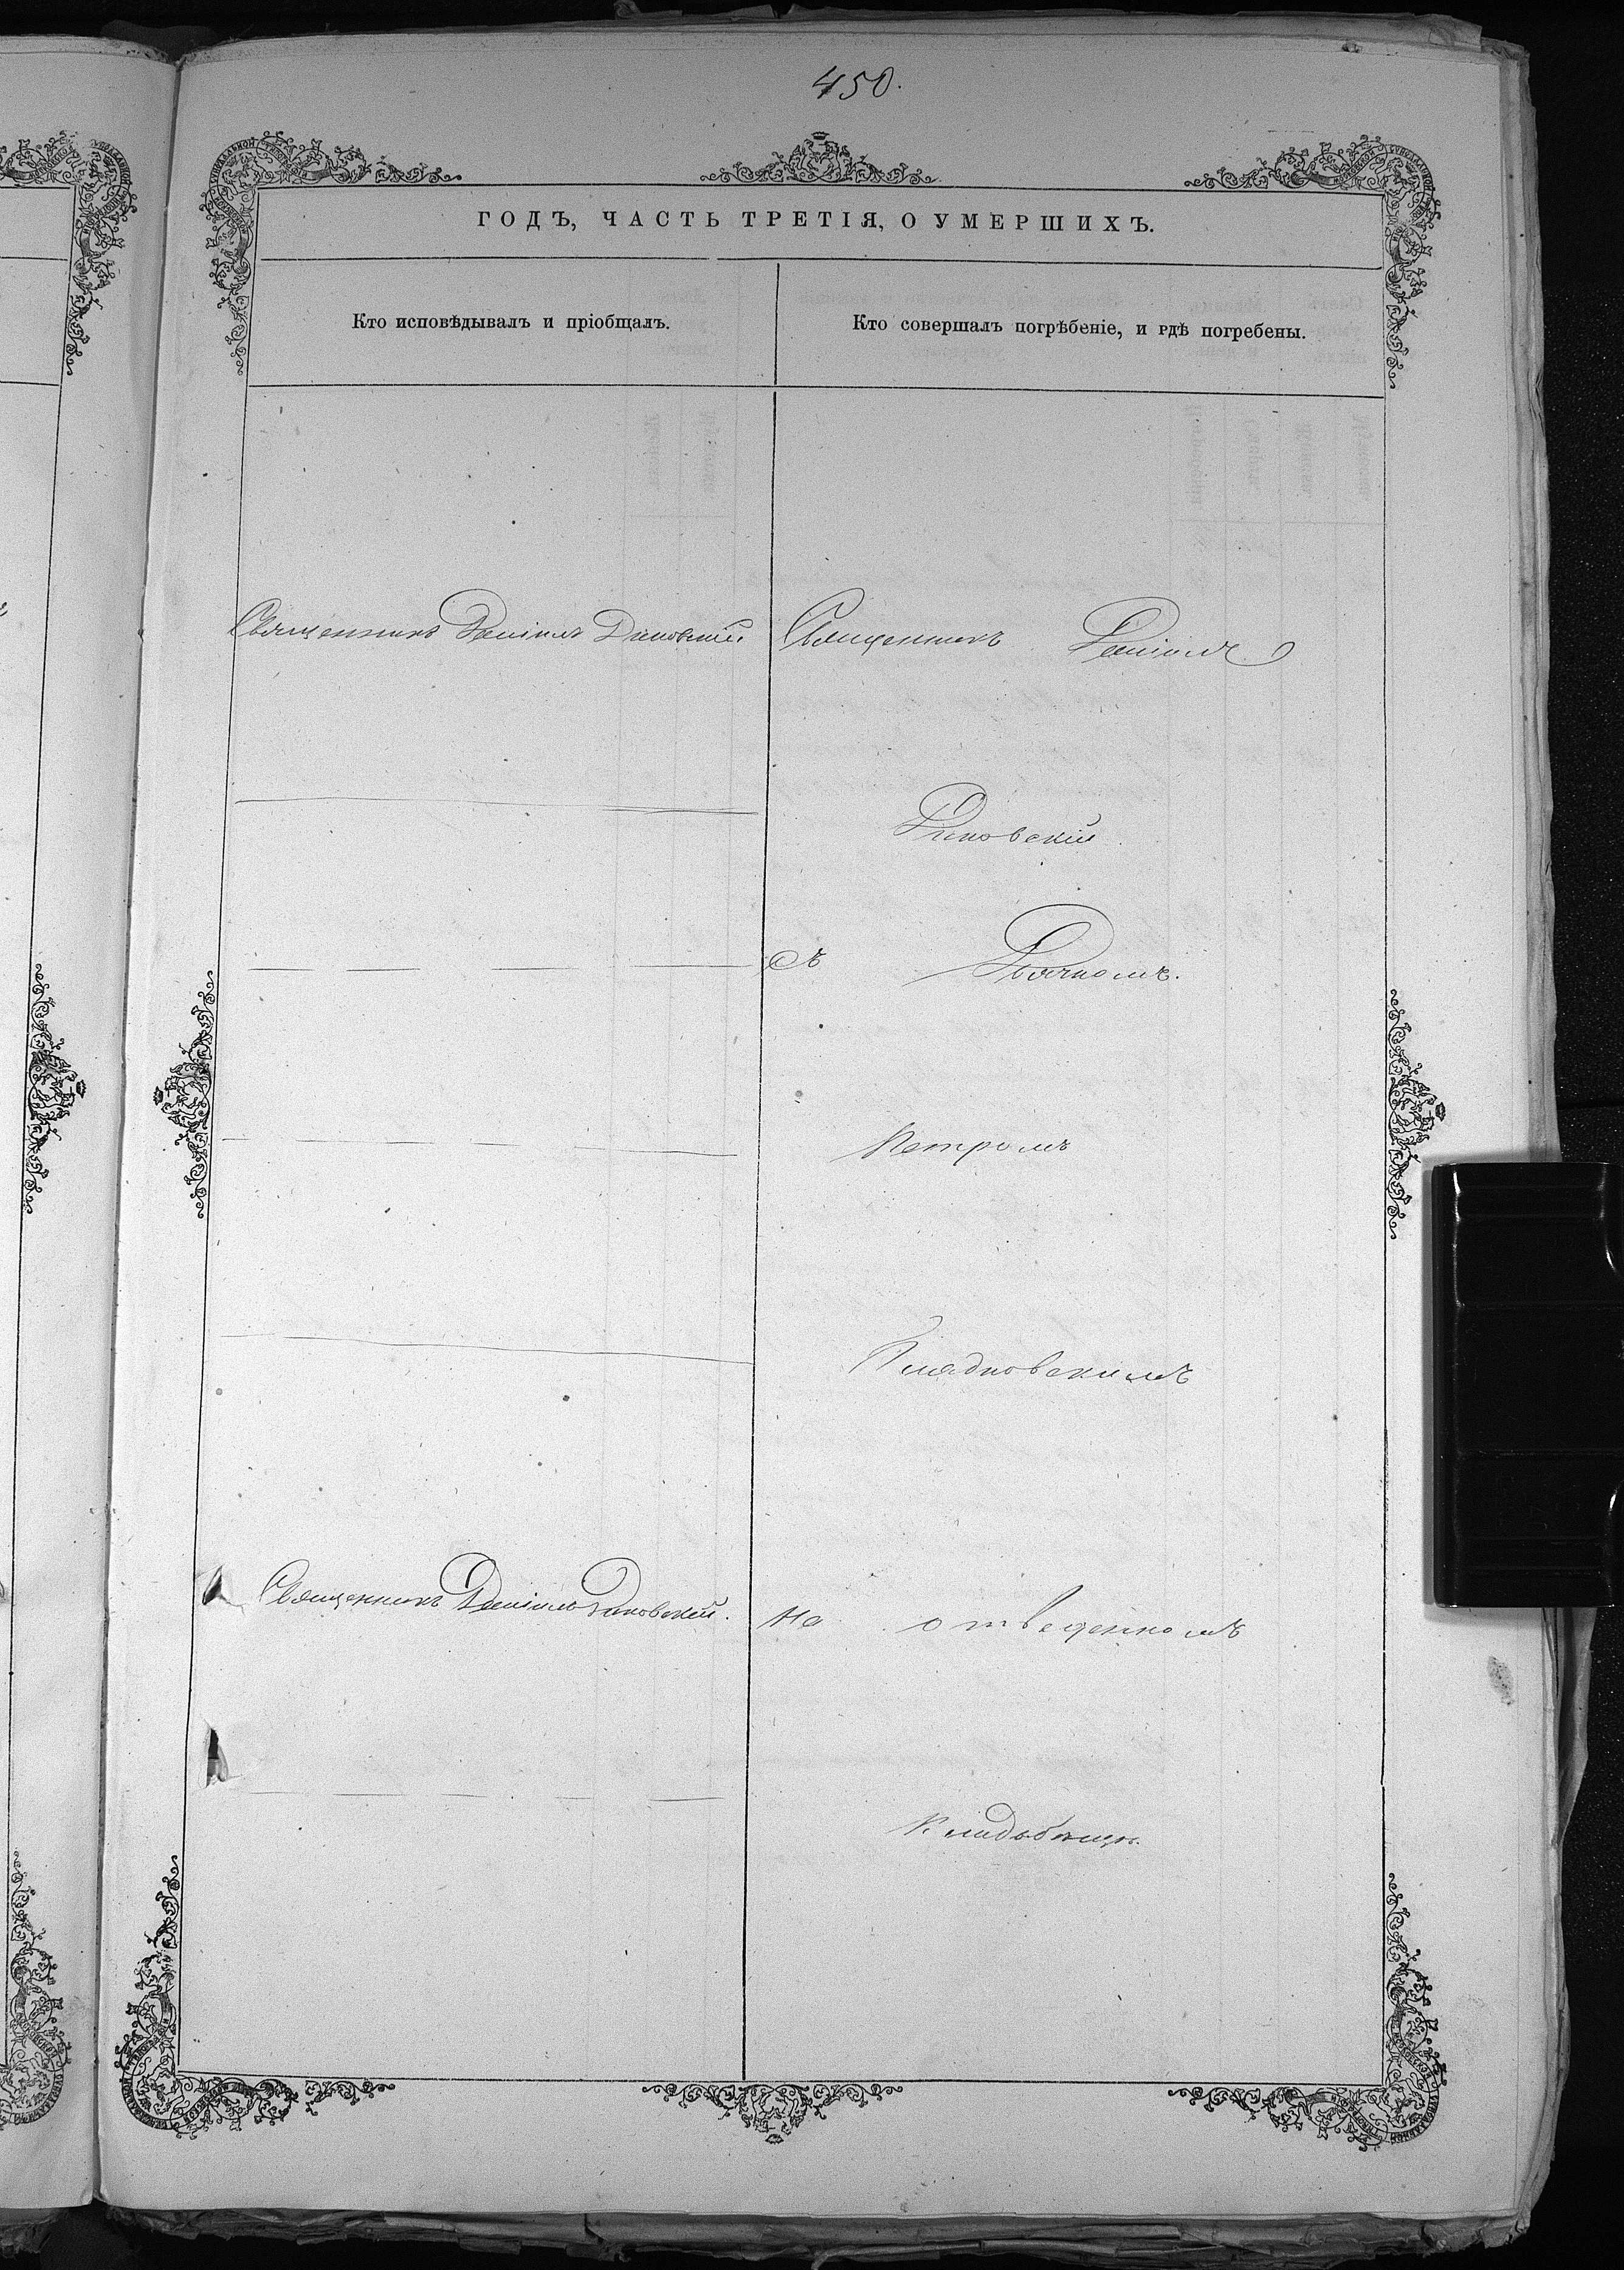 450.
ГОДЪ, ЧАСТЬ ТРЕТІЯ, О УМЕРШИХЪ.
Кто исповѣдывалъ и пріобщалъ.
Кто совершалъ погребеніе, и гдѣ погребены.
Священникъ Даніилъ Диковскій
Священникъ Даніилъ
Диковскій
съ Дьячкомъ.
Петромъ
Священникъ Даніилъ Диковскій.
на отведенномъ
Кладбищѣ.